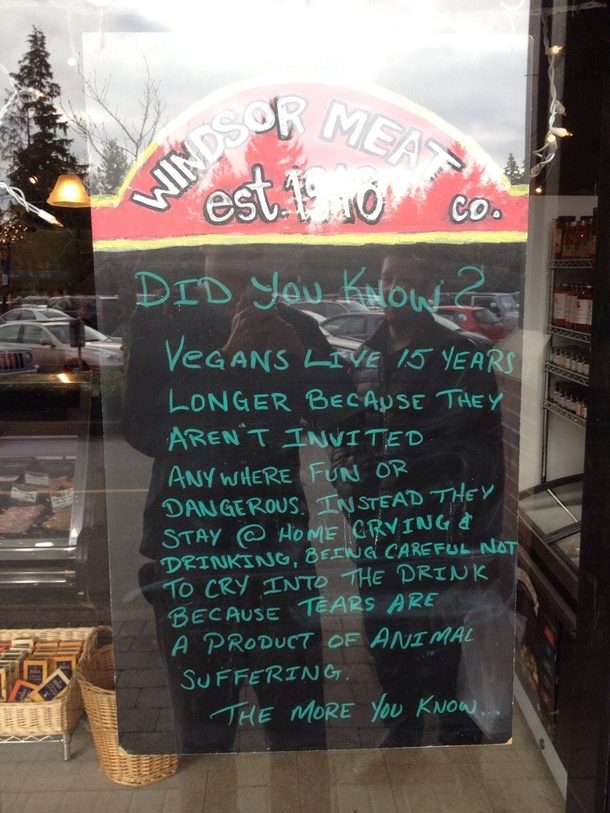 WINDSOR MEAT
est. 1918 co.
DID YOU KNOW?
VEGANS LIVE 15 YEARS
LONGER BECAUSE THEY
AREN'T INVITED
ANYWHERE FUN OR
DANGEROUS. INSTEAD THEY
STAY @ HOME CRYING &
DRINKING, BEING CAREFUL NOT
TO CRY INTO THE DRINK
BECAUSE TEARS ARE
A PRODUCT OF ANIMAL
SUFFERING.
THE MORE YOU KNOW...